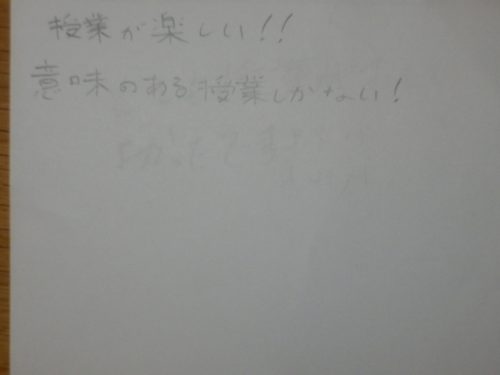 授業が楽しい!!
意味のある授業しかない!